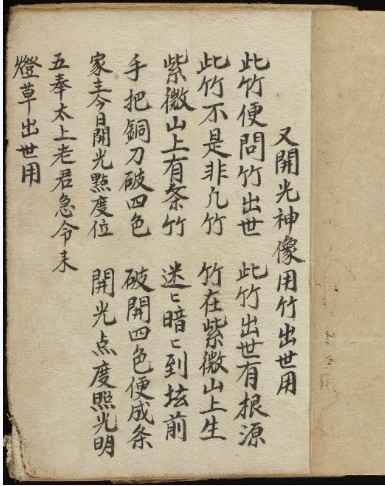 又開光神像用竹出世用
此竹便問竹出世 此竹出世有根源
此竹不是非凢竹 竹在紫微山上生
紫微山上有条竹 迷〻暗〻到坛前
手把銅刀破四色 破開四色便成条
家主今日開光點度位 開光点度照光明
五奉太上老君急令耒
燈草出世用